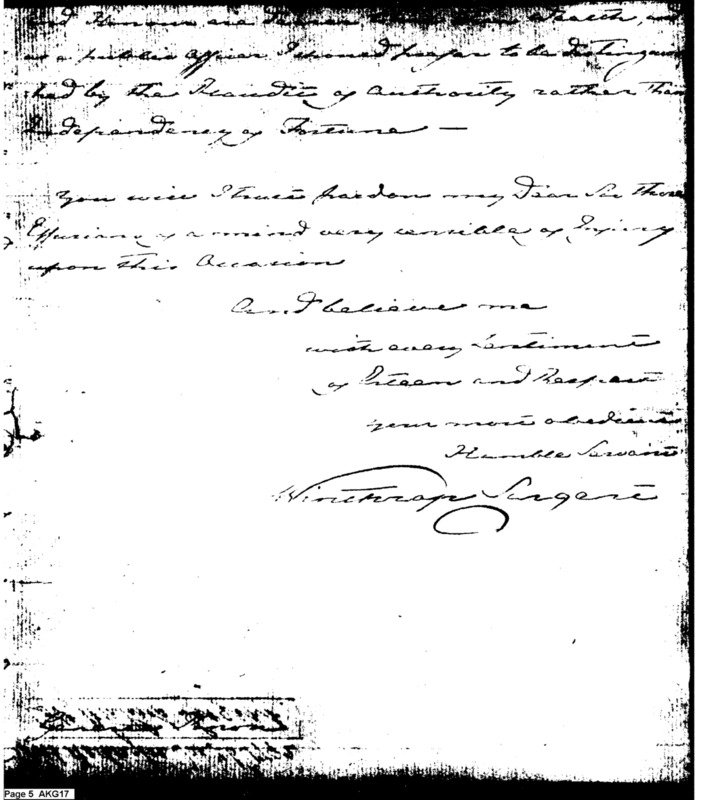 and Honour are dearer than Health, and
as a public Officer I should prefer to be distinguis
hed by the Plaudits of Authority rather than
Independency of Fortune —
You will I trust pardon my Dear Sir those
Effusions of a mind very sensible of Injury
upon this Occasion
And believe me
with every Sentiment
of Esteem and Respect
your most obedient
Humble Servant
Winthrop Sargent
Page 5 AKG17